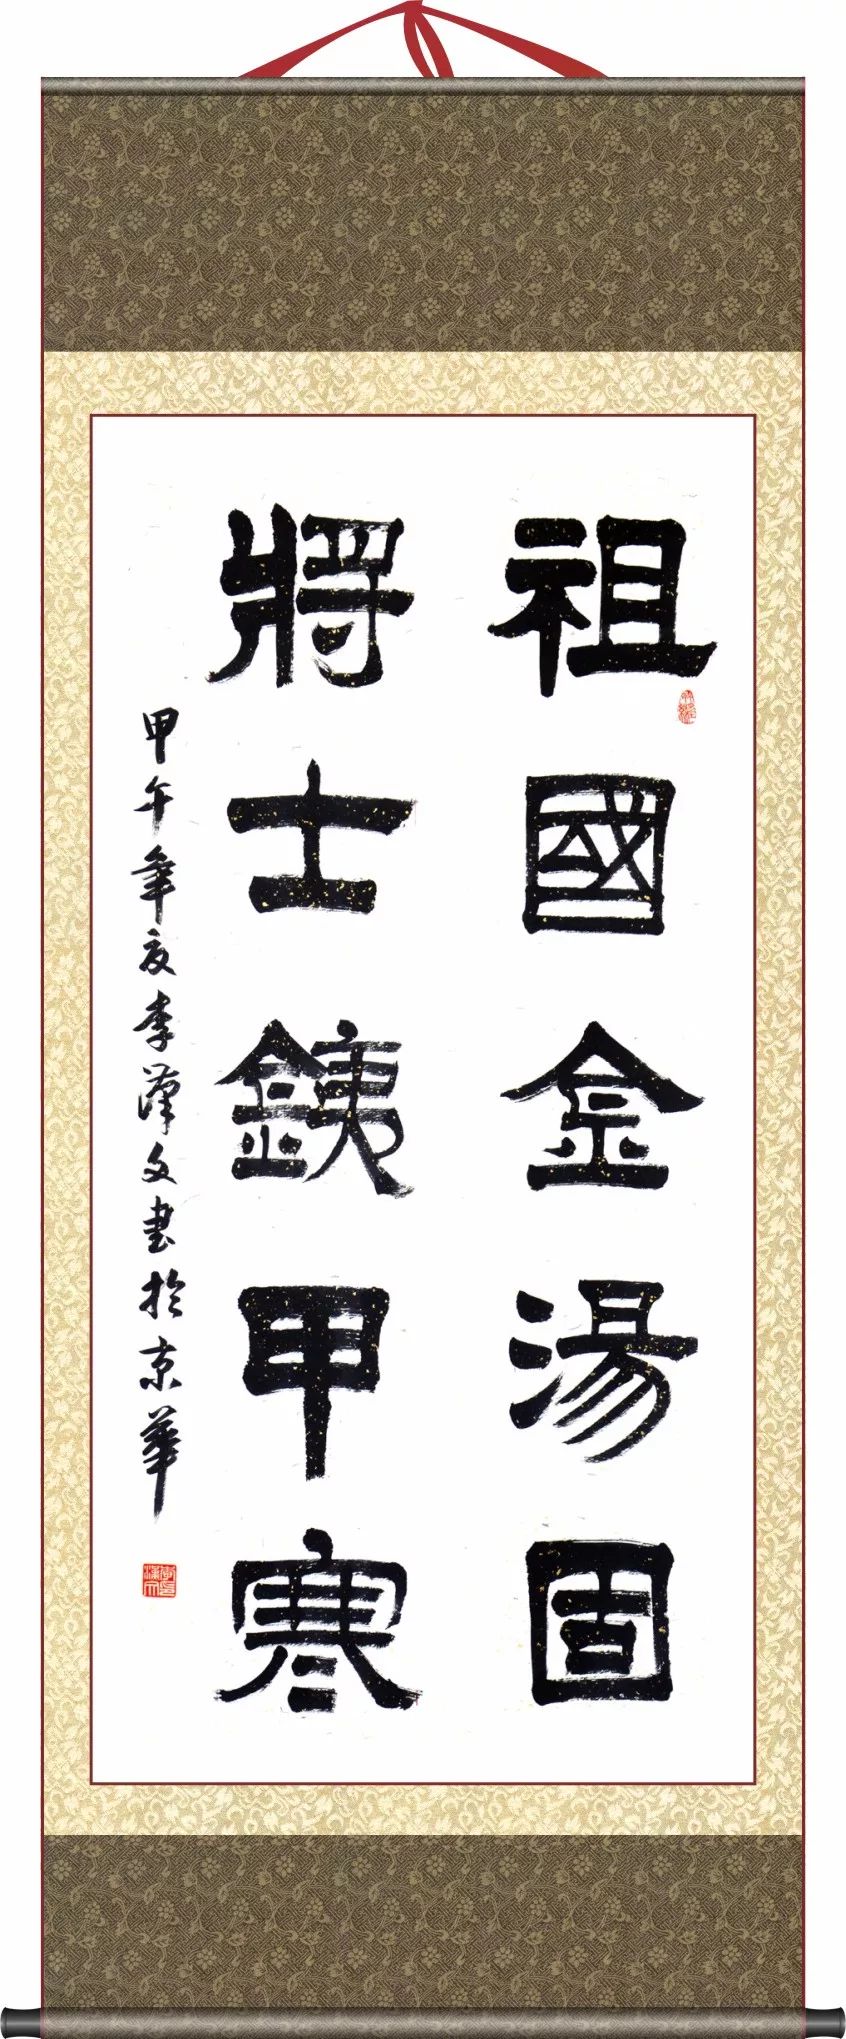 祖國金湯固
將士銕甲寒
甲午年夏李漢文書於京華